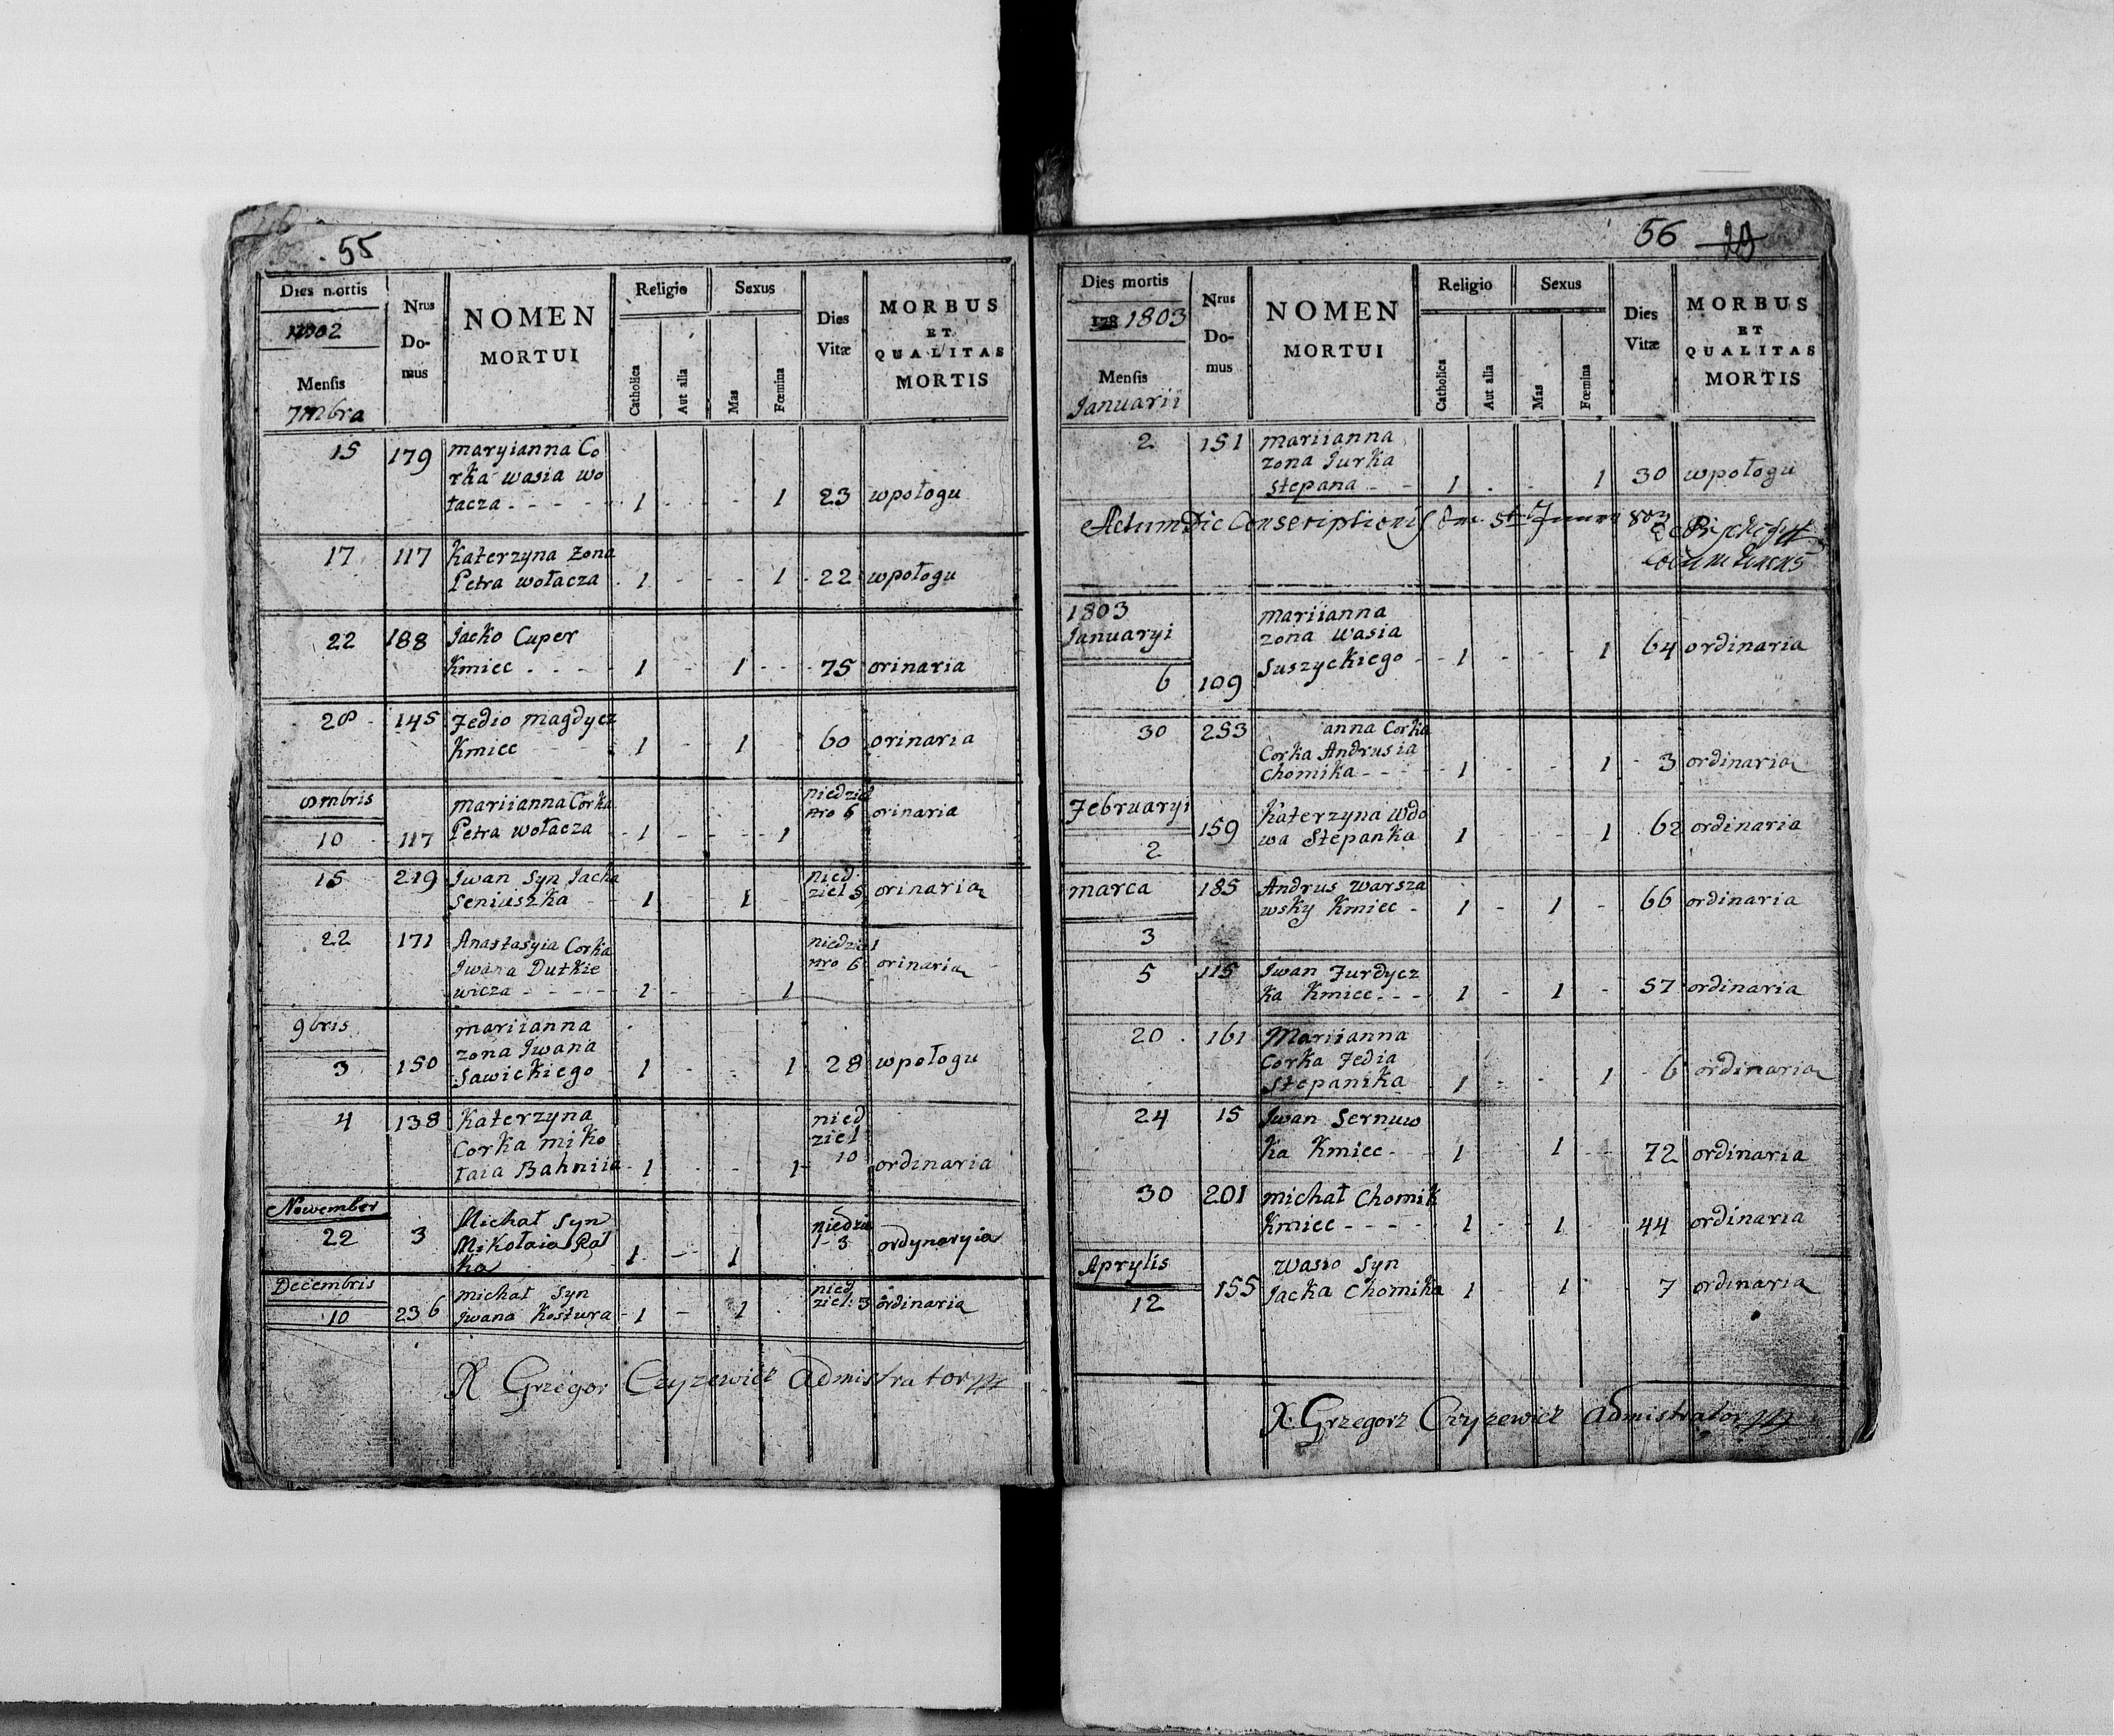 55
Dies mortis
1802
Mensis
7mbra
Nrus
Do-
mus
NOMEN
MORTUI
Religio
Catholica
Aut alia
Sexus
Mas
Fœmina
Dies
Vitæ
MORBUS
ET
QUALITAS
MORTIS
15 179 maryianna Co
rka wasia wo
łacza - - - - 1 - - - 1 23 wpołogu
17 117 Katerzyna zona
Petra wołacza - 1 - - - 1 - 22 wpołogu
22 188 Jacko Cuper
Kmiec - - - - 1 - 1 - - - 75 orinaria
28 145 Fedio magdycz
Kmiec - - - 1 - 1 - 60 orinaria
8mbris
10 117 mariianna Corka
Petra wołacza - 1 - - - 1 niedziel
nro 6 orinaria
15 219 Jwan Syn Jacka
Seniuszka - 1 - 1 - nied
ziel 5 orinaria
22 171 Anastasyia Corka
Jwana Dutkie
wicza - - - - 1 - - 1 niedziel
nro 6 orinaria
9bris
3 150 mariianna
zona Jwana
Sawickiego 1 - - 1 28 wpołogu
4 138 Katerzyna
Corka miko
łaia Bahniia - 1 - - 1 - nied
ziel
10 ordinaria
Nowember
22 3 Michał Syn
Mikołaia Rał
ka 1 - 1 niedzie
l - 3 ordynaryia
Decembris
10 236 michał Syn
Jwana Kostura - 1 - 1 nied
ziel: 3 ordinaria
X Grzegor Czyzewicz Admistrator
56 19
Dies mortis
178 1803
Mensis
Januarii
Nrus
Do-
mus
NOMEN
MORTUI
Religio
Catholica
Aut alia
Sexus
Mas
Fœmina
Dies
Vitæ
MORBUS
ET
QUALITAS
MORTIS
2 151 mariianna
zona Jurka
Stepana - - 1 - - 1 30 wpołogu
Actum Dic Conscriptionis
1803
Januaryi
6 109 mariianna
zona wasia
Suszyckiego - - 1 - - - 1 64 ordinaria
30 253 anna Corka
Corka Andrusia
Chomika - - - - 1 - - 1 - 3 ordinaria
Februaryi
2 159 Katerzyna wdo
wa Stepanka 1 - - 1 62 ordinaria
marca
3 185 Andrus warsza
wsky Kmiec - 1 - 1 - 66 ordinaria
5 115 Jwan Furdycz
ka Kmiec - - - 1 - 1 - 57 ordinaria
20 161 Mariianna
Corka Fedia
Stepanika - 1 - - 1 - 6 ordinaria
24 15 Jwan Sernuw
ka Kmiec - - 1 - 1 - - 72 ordinaria
30 201 michał Chomik
Kmiec - - - - 1 - - 1 - 44 ordinaria
Aprylis
12 155 wasio Syn
Jacka Chomika 1 - 1 - 7 ordinaria
X. Grzegorz Czyzewicz Admistrator